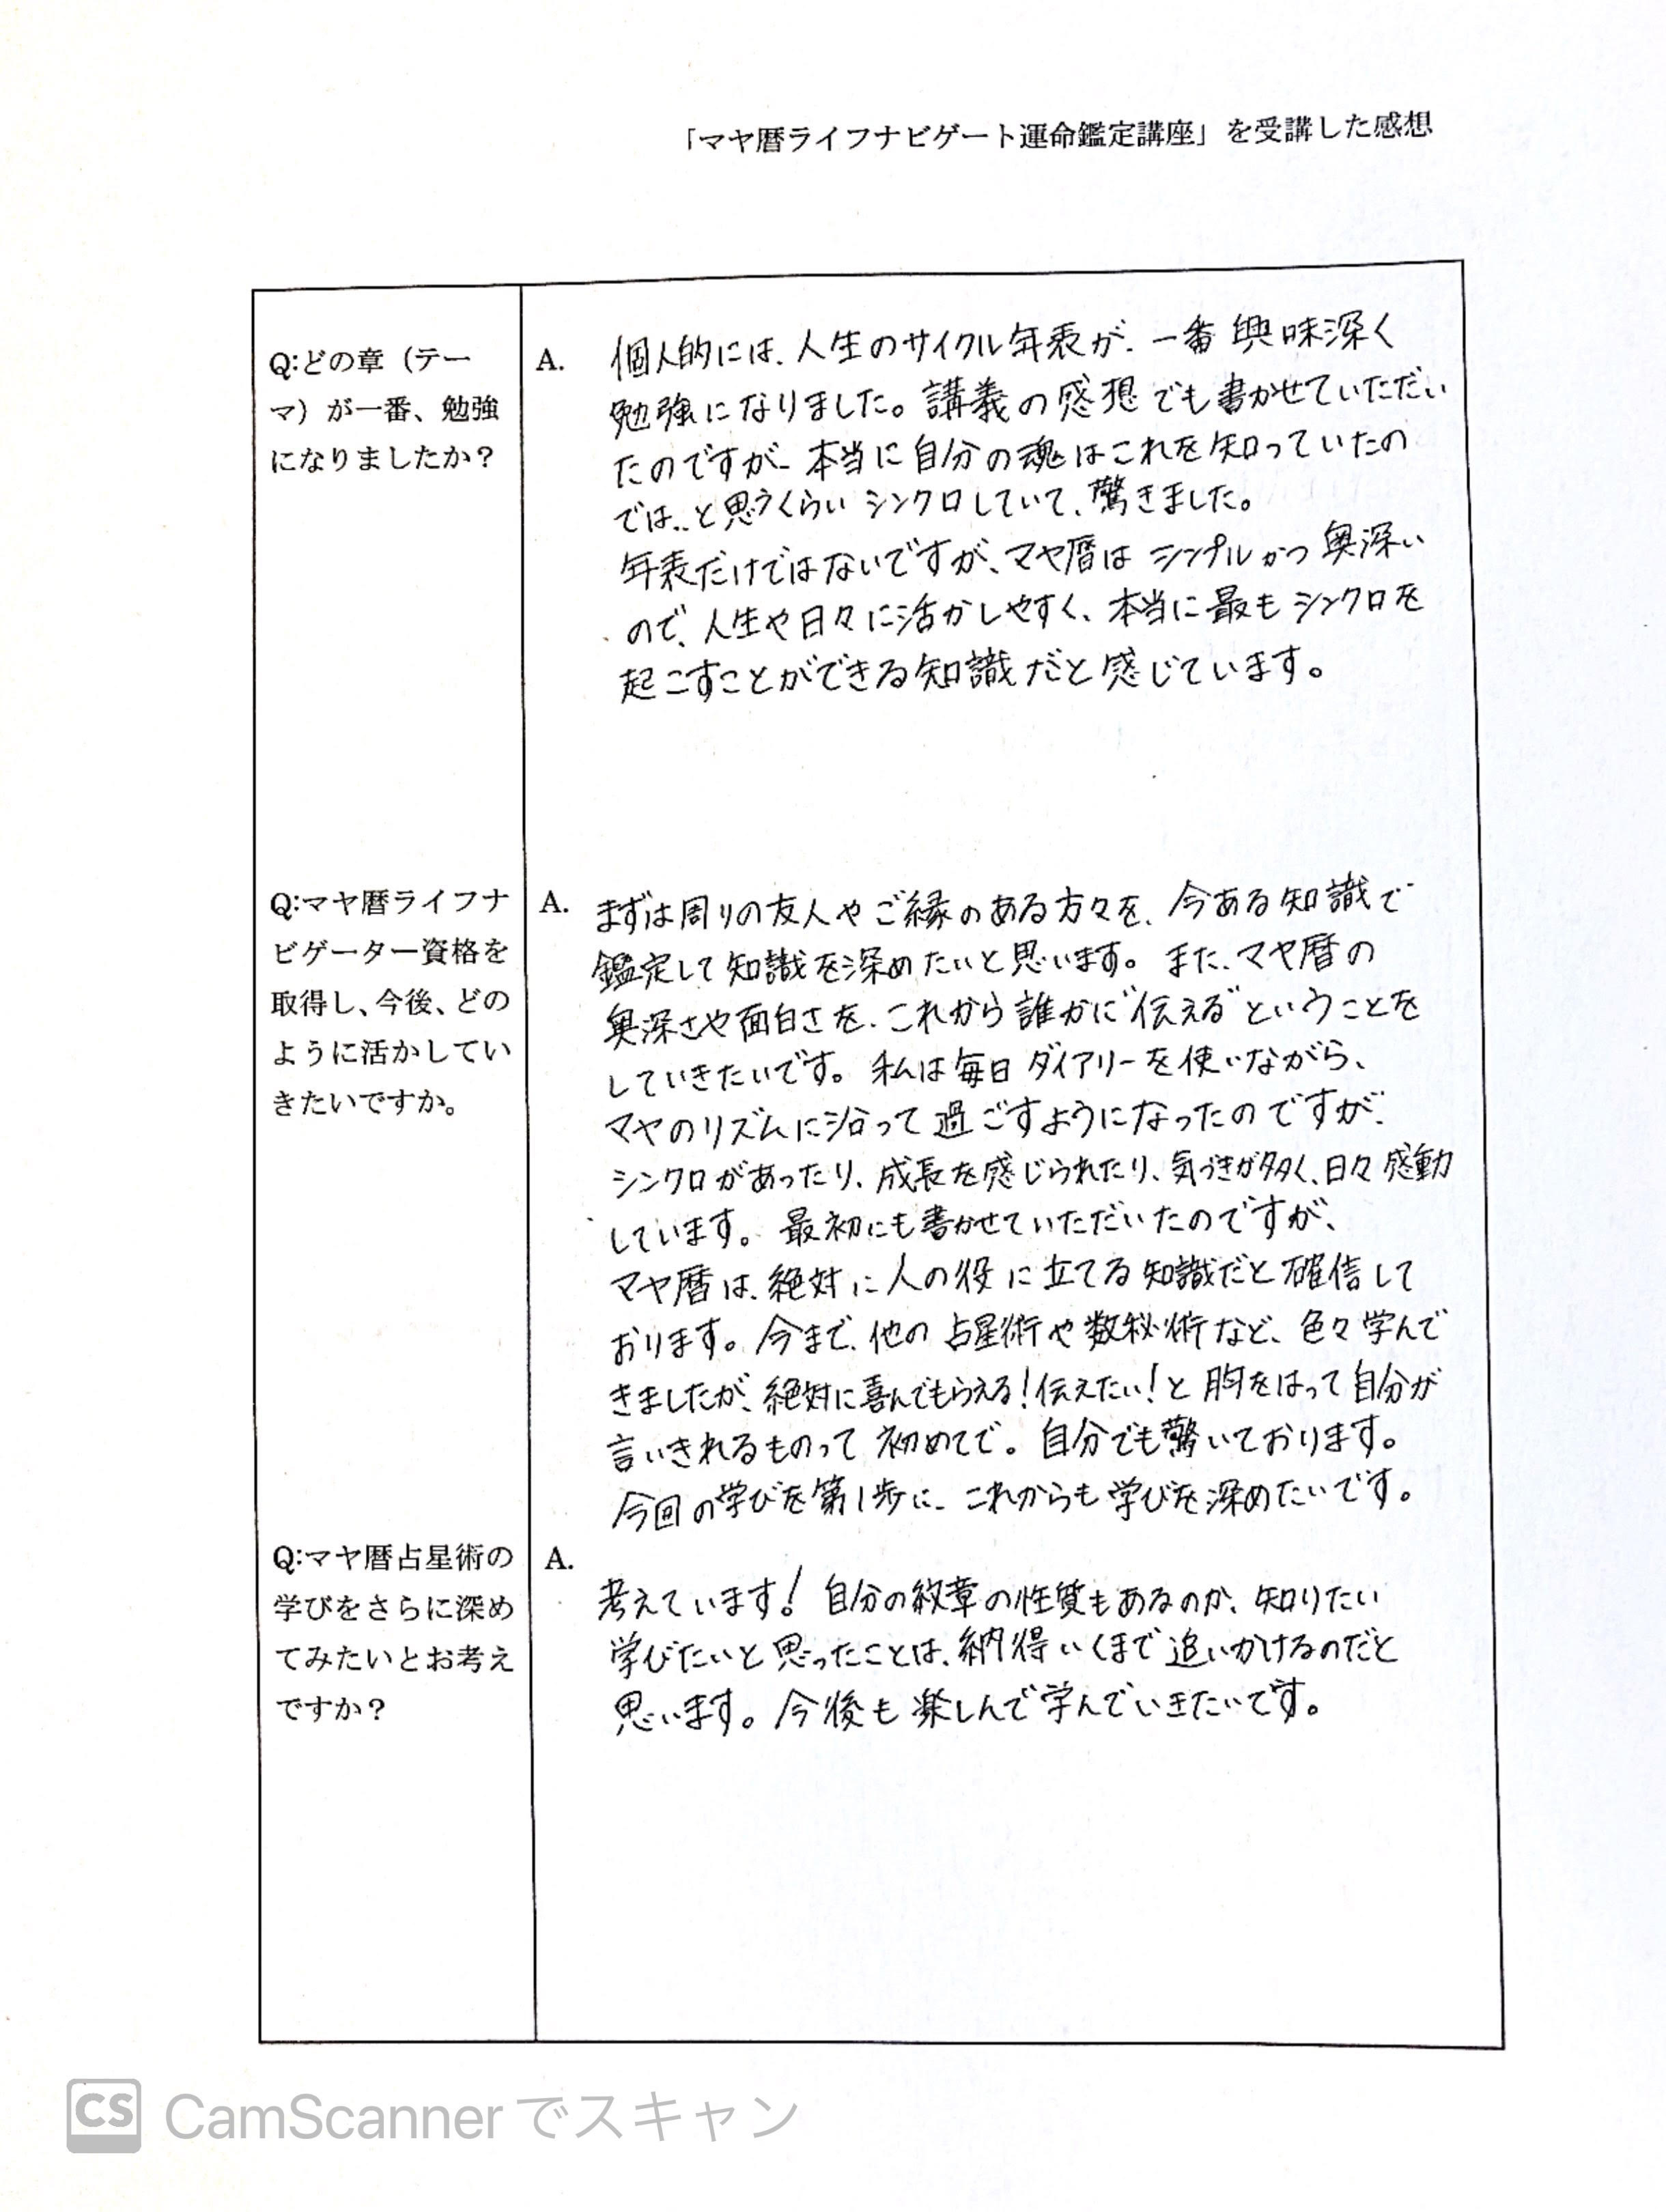 「マヤ暦ライフナビゲート運命鑑定講座」を受講した感想
Q:どの章（テー
マ）が一番、勉強
になりましたか？
A.
個人的には、人生のサイクル年表が、一番興味深く
勉強になりました。講義の感想でも書かせていただい
たのですが、本当に自分の魂はこれを知っていたの
では..と思うくらいシンクロしていて、驚きました。
年表だけではないですが、マヤ暦はシンプルかつ奥深い
ので、人生や日々に活かしやすく、本当に最もシンクロを
起こすことができる知識だと感じています。
Q:マヤ暦ライフナ
ビゲーター資格を
取得し、今後、どの
ように活かしてい
きたいですか。
A.
まずは周りの友人やご縁のある方々を、今ある知識で
鑑定して知識を深めたいと思います。また、マヤ暦の
奥深さや面白さを、これから誰かに"伝える"ということを
していきたいです。私は毎日ダイアリーを使いながら、
マヤのリズムに沿って過ごすようになったのですが、
シンクロがあったり、成長を感じられたり、気づきが多く、日々感動
しています。最初にも書かせていただいたのですが、
マヤ暦は、絶対に人の役に立てる知識だと確信して
おります。今まで、他の占星術や数秘術など、色々学んで
きましたが、絶対に喜んでもらえる！伝えたい！と胸をはって自分が
言いきれるものって初めてで。自分でも驚いております。
今回の学びを第1歩に、これからも学びを深めたいです。
Q:マヤ暦占星術の
学びをさらに深め
てみたいとお考え
ですか？
A.
考えています！自分の紋章の性質もあるのか、知りたい
学びたいと思ったことは、納得いくまで追いかけるのだと
思います。今後も楽しんで学んでいきたいです。
CS CamScannerでスキャン